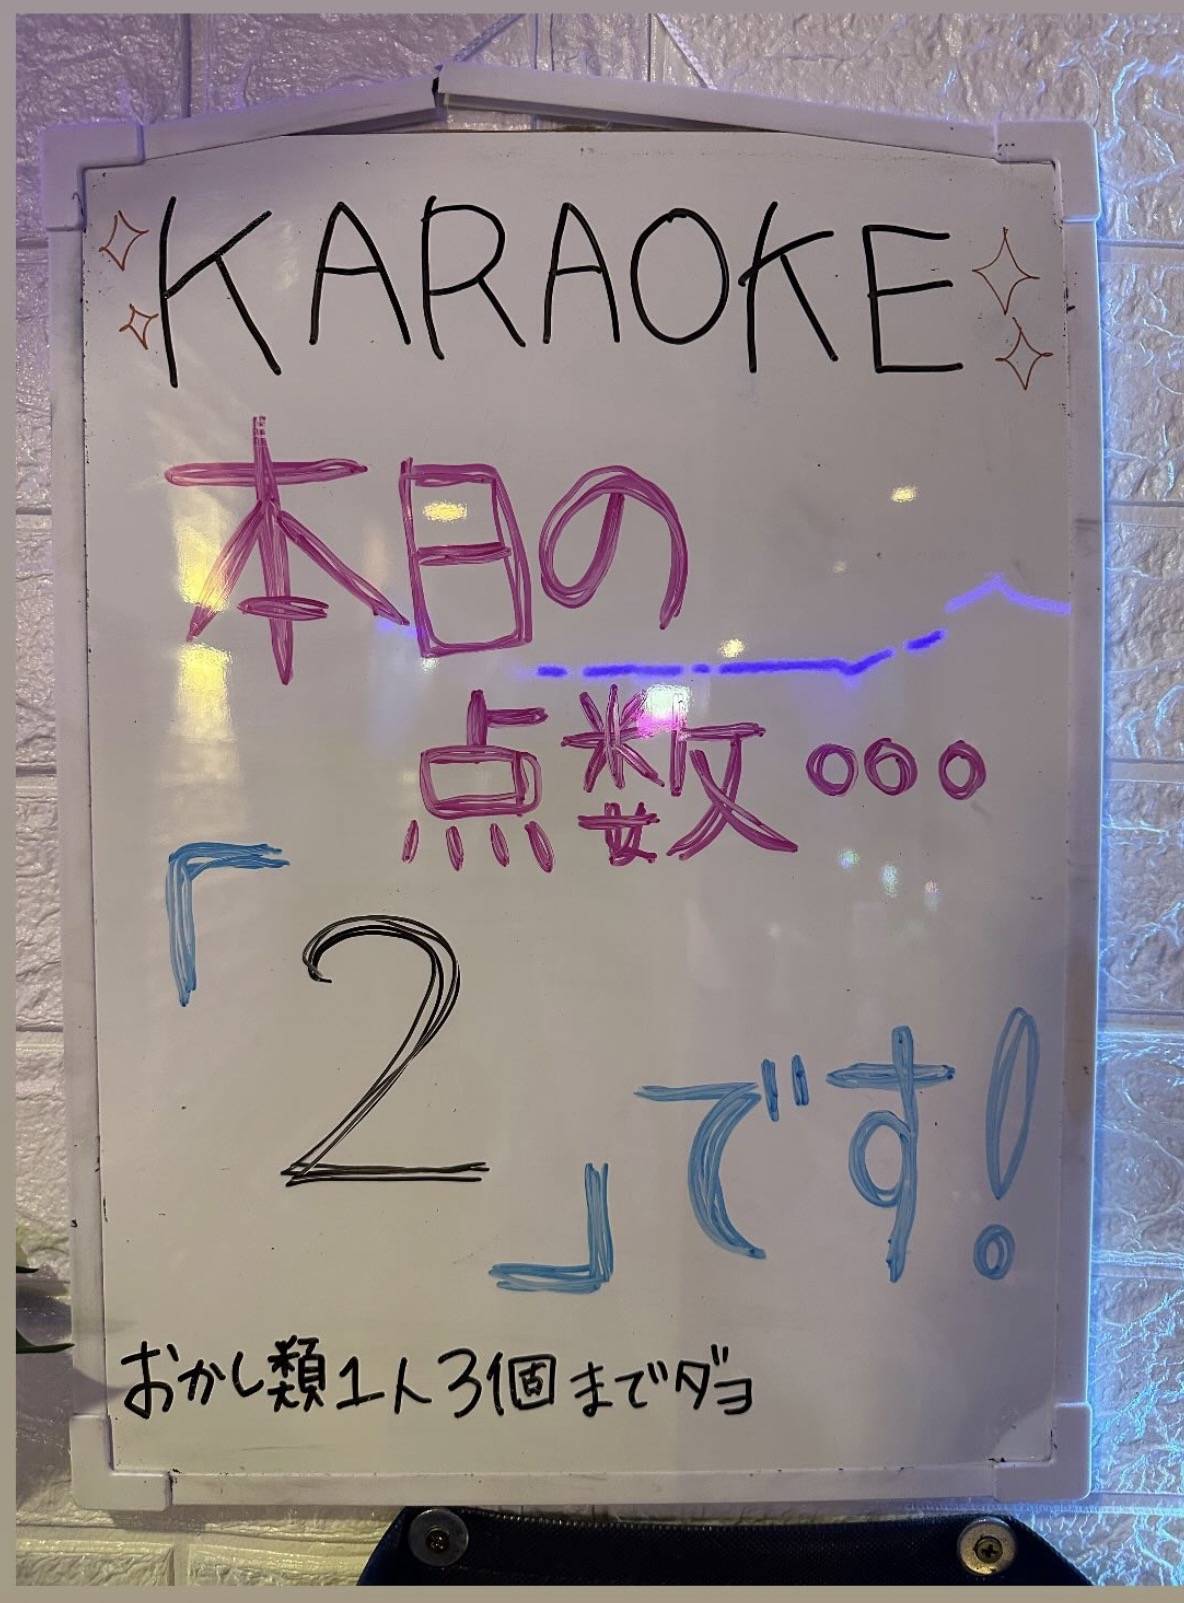 KARAOKE
本日の
点数○○○
「2」です!
おかし類1人3個までダヨ